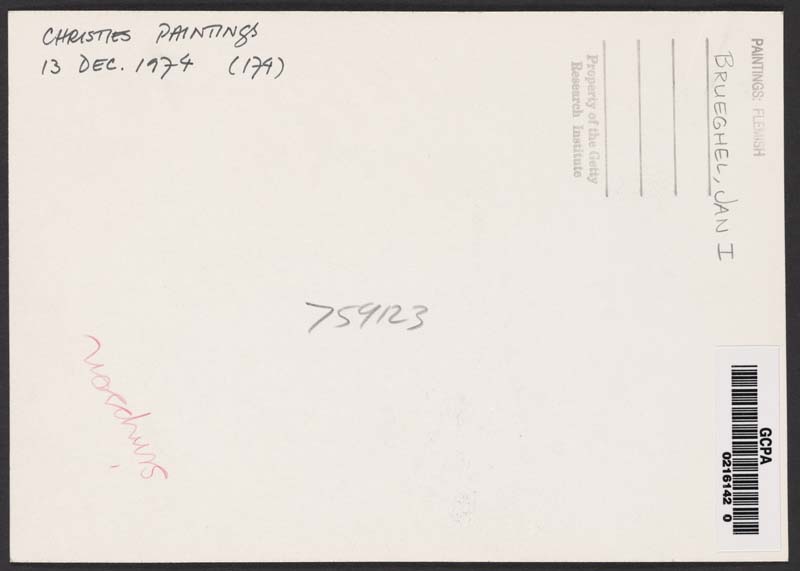 CHRISTIES PAINTINGS
13 DEC. 1974 (179)
PAINTINGS: FLEMISH
BRUEGHEL, JAN I
Property of the Getty
Research Institute
759123
GCPA
0216142 0